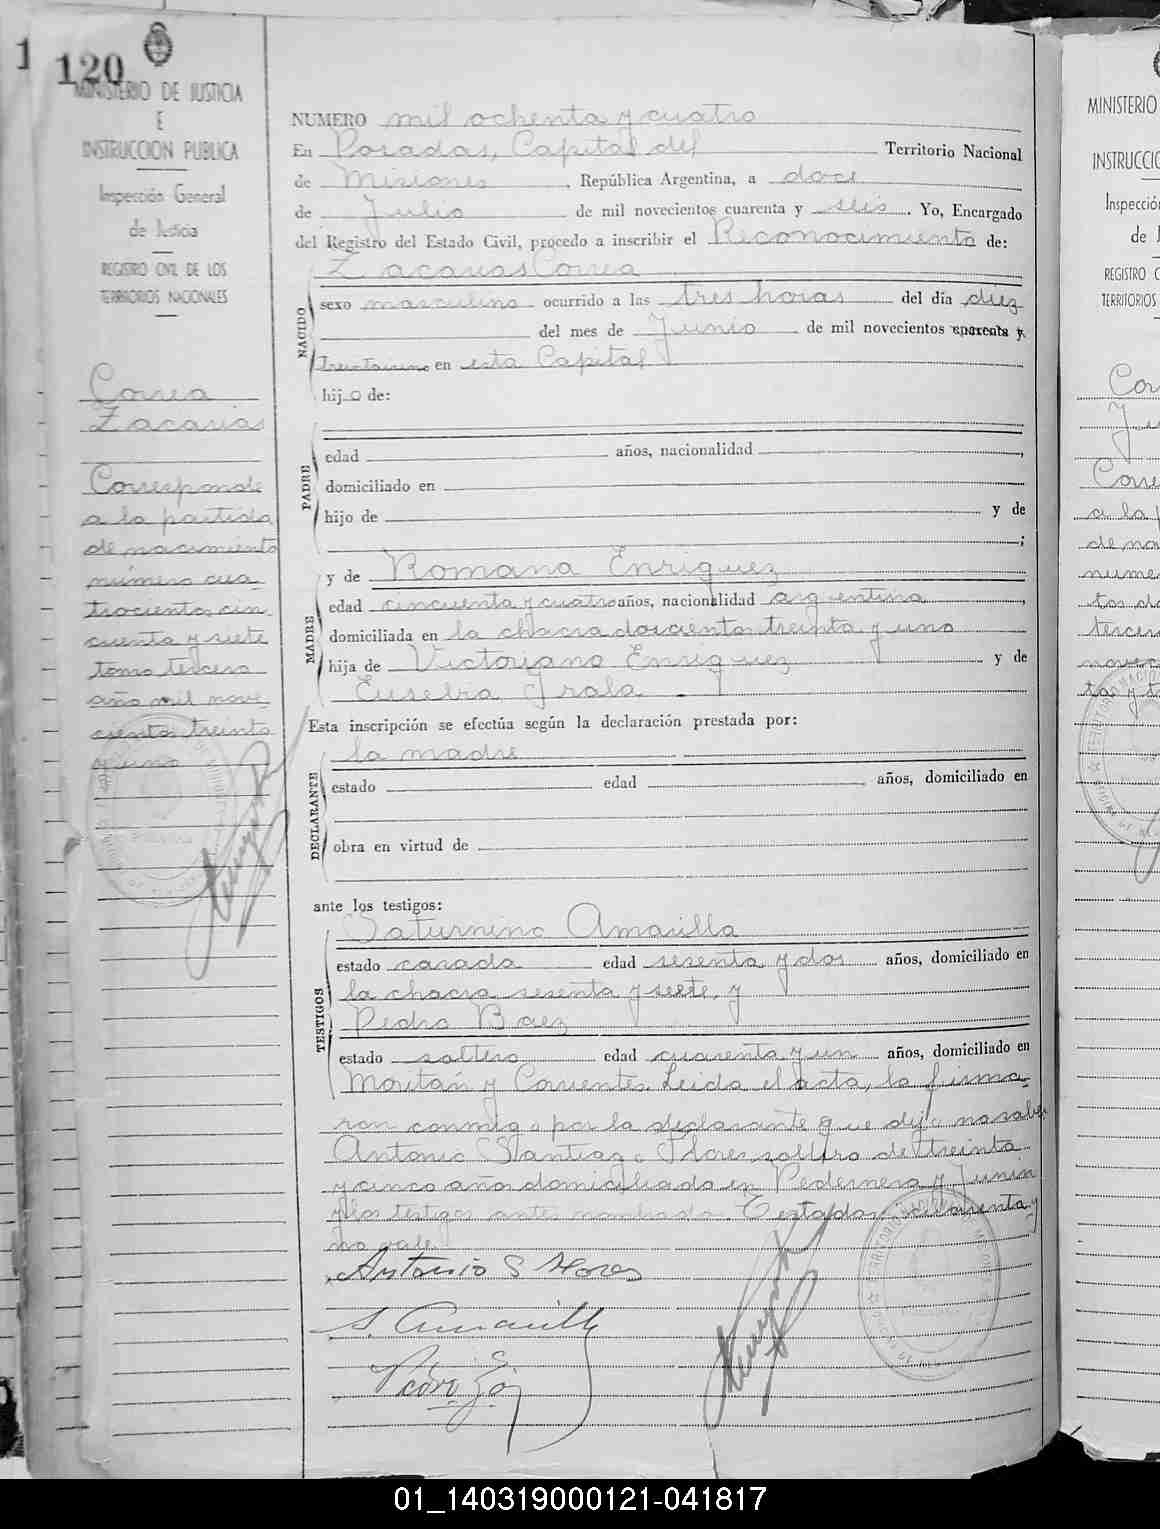 1
120
MINISTERIO DE JUSTICIA
E
INSTRUCCION PUBLICA
Inspección General
de Justicia
REGISTRO CIVIL DE LOS
TERRITORIOS NACIONALES
Correa
Zacarias
Corresponde
a la partida
de nacimiento
número cua
trocientos cin
cuenta y siete
tomo tercero
año mil nove
cientos treinta
y uno
NUMERO mil ochenta y cuatro
En Posadas, Capital del Territorio Nacional
de Misiones, República Argentina, a doce
de Julio de mil novecientos cuarenta y seis. Yo, Encargado
del Registro del Estado Civil, procedo a inscribir el Reconocimiento de:
Zacarias Correa
NACIDO
sexo masculino ocurrido a las tres horas del día diez
del mes de Junio de mil novecientos cuarenta y
treintaiuno en esta Capital
hijo de:
PADRE
edad años, nacionalidad ,
domiciliado en
hijo de y de
;
MADRE
y de Romana Enriquez
edad cincuenta y cuatro años, nacionalidad argentina,
domiciliada en la chacra doscientos treinta y uno
hija de Victoriano Enriquez y de
Eusebia Irala
Esta inscripción se efectúa según la declaración prestada por:
DECLARANTE
la madre
estado edad años, domiciliado en
obra en virtud de
ante los testigos:
TESTIGOS
Saturnino Amarilla
estado casado edad sesenta y dos años, domiciliado en
la chacra sesenta y siete, y
Pedro Baez
estado soltero edad cuarenta y un años, domiciliado en
Moritán y Corrientes. Leida el acta, la firma
ron conmigo por la declarante que dijo no saber
Antonio Santiago Flores soltero de treinta
y cinco años domiciliado en Pedernera y Junin
y los testigos antes nombrados. Testado: cuarenta y
no vale
Antonio S Flores
S. Amarilla
Pedro
MINISTERIO
INSTRUCCIO
Inspección
de J
REGISTRO C
TERRITORIOS
Cor
Corre
a la p
de na
nume
tos do
tercero
novec
ta y
01_140319000121-041817